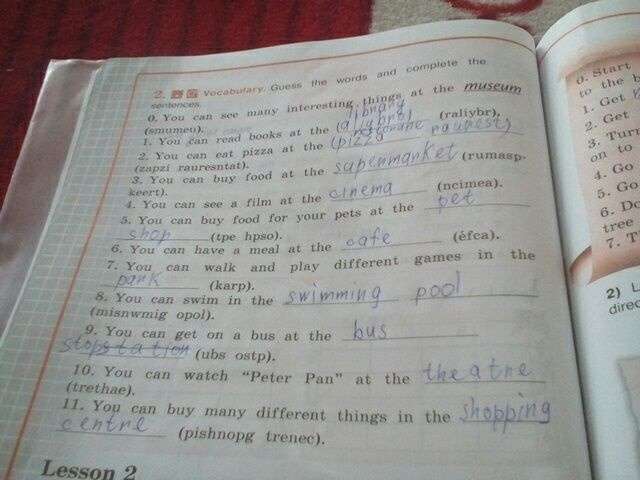 2. Vocabulary. Guess the words and complete the
sentences.
0. You can see many interesting things at the museum
(smumeu).
library
1. You can read books at the (raliybr).
restorane
2. You can eat pizza at the (pizza raurest)
(zapzi rauresntat).
3. You can buy food at the supermarket (rumasp-
keert).
4. You can see a film at the cinema (ncimea).
5. You can buy food for your pets at the pet
shop (tpe hpso).
6. You can have a meal at the cafe (éfca).
7. You can walk and play different games in the
park (karp).
8. You can swim in the swimming pool
(misnwmig opol).
9. You can get on a bus at the bus
stop station (ubs ostp).
10. You can watch "Peter Pan" at the theatre
(trethae).
11. You can buy many different things in the shopping
centre (pishnopg trenec).
Lesson 2
0. Start
to the b
1. Get
2. Get
3. Turn
on to
4. Go
5. Go
6. Do
tree
7. T
2) L
direc